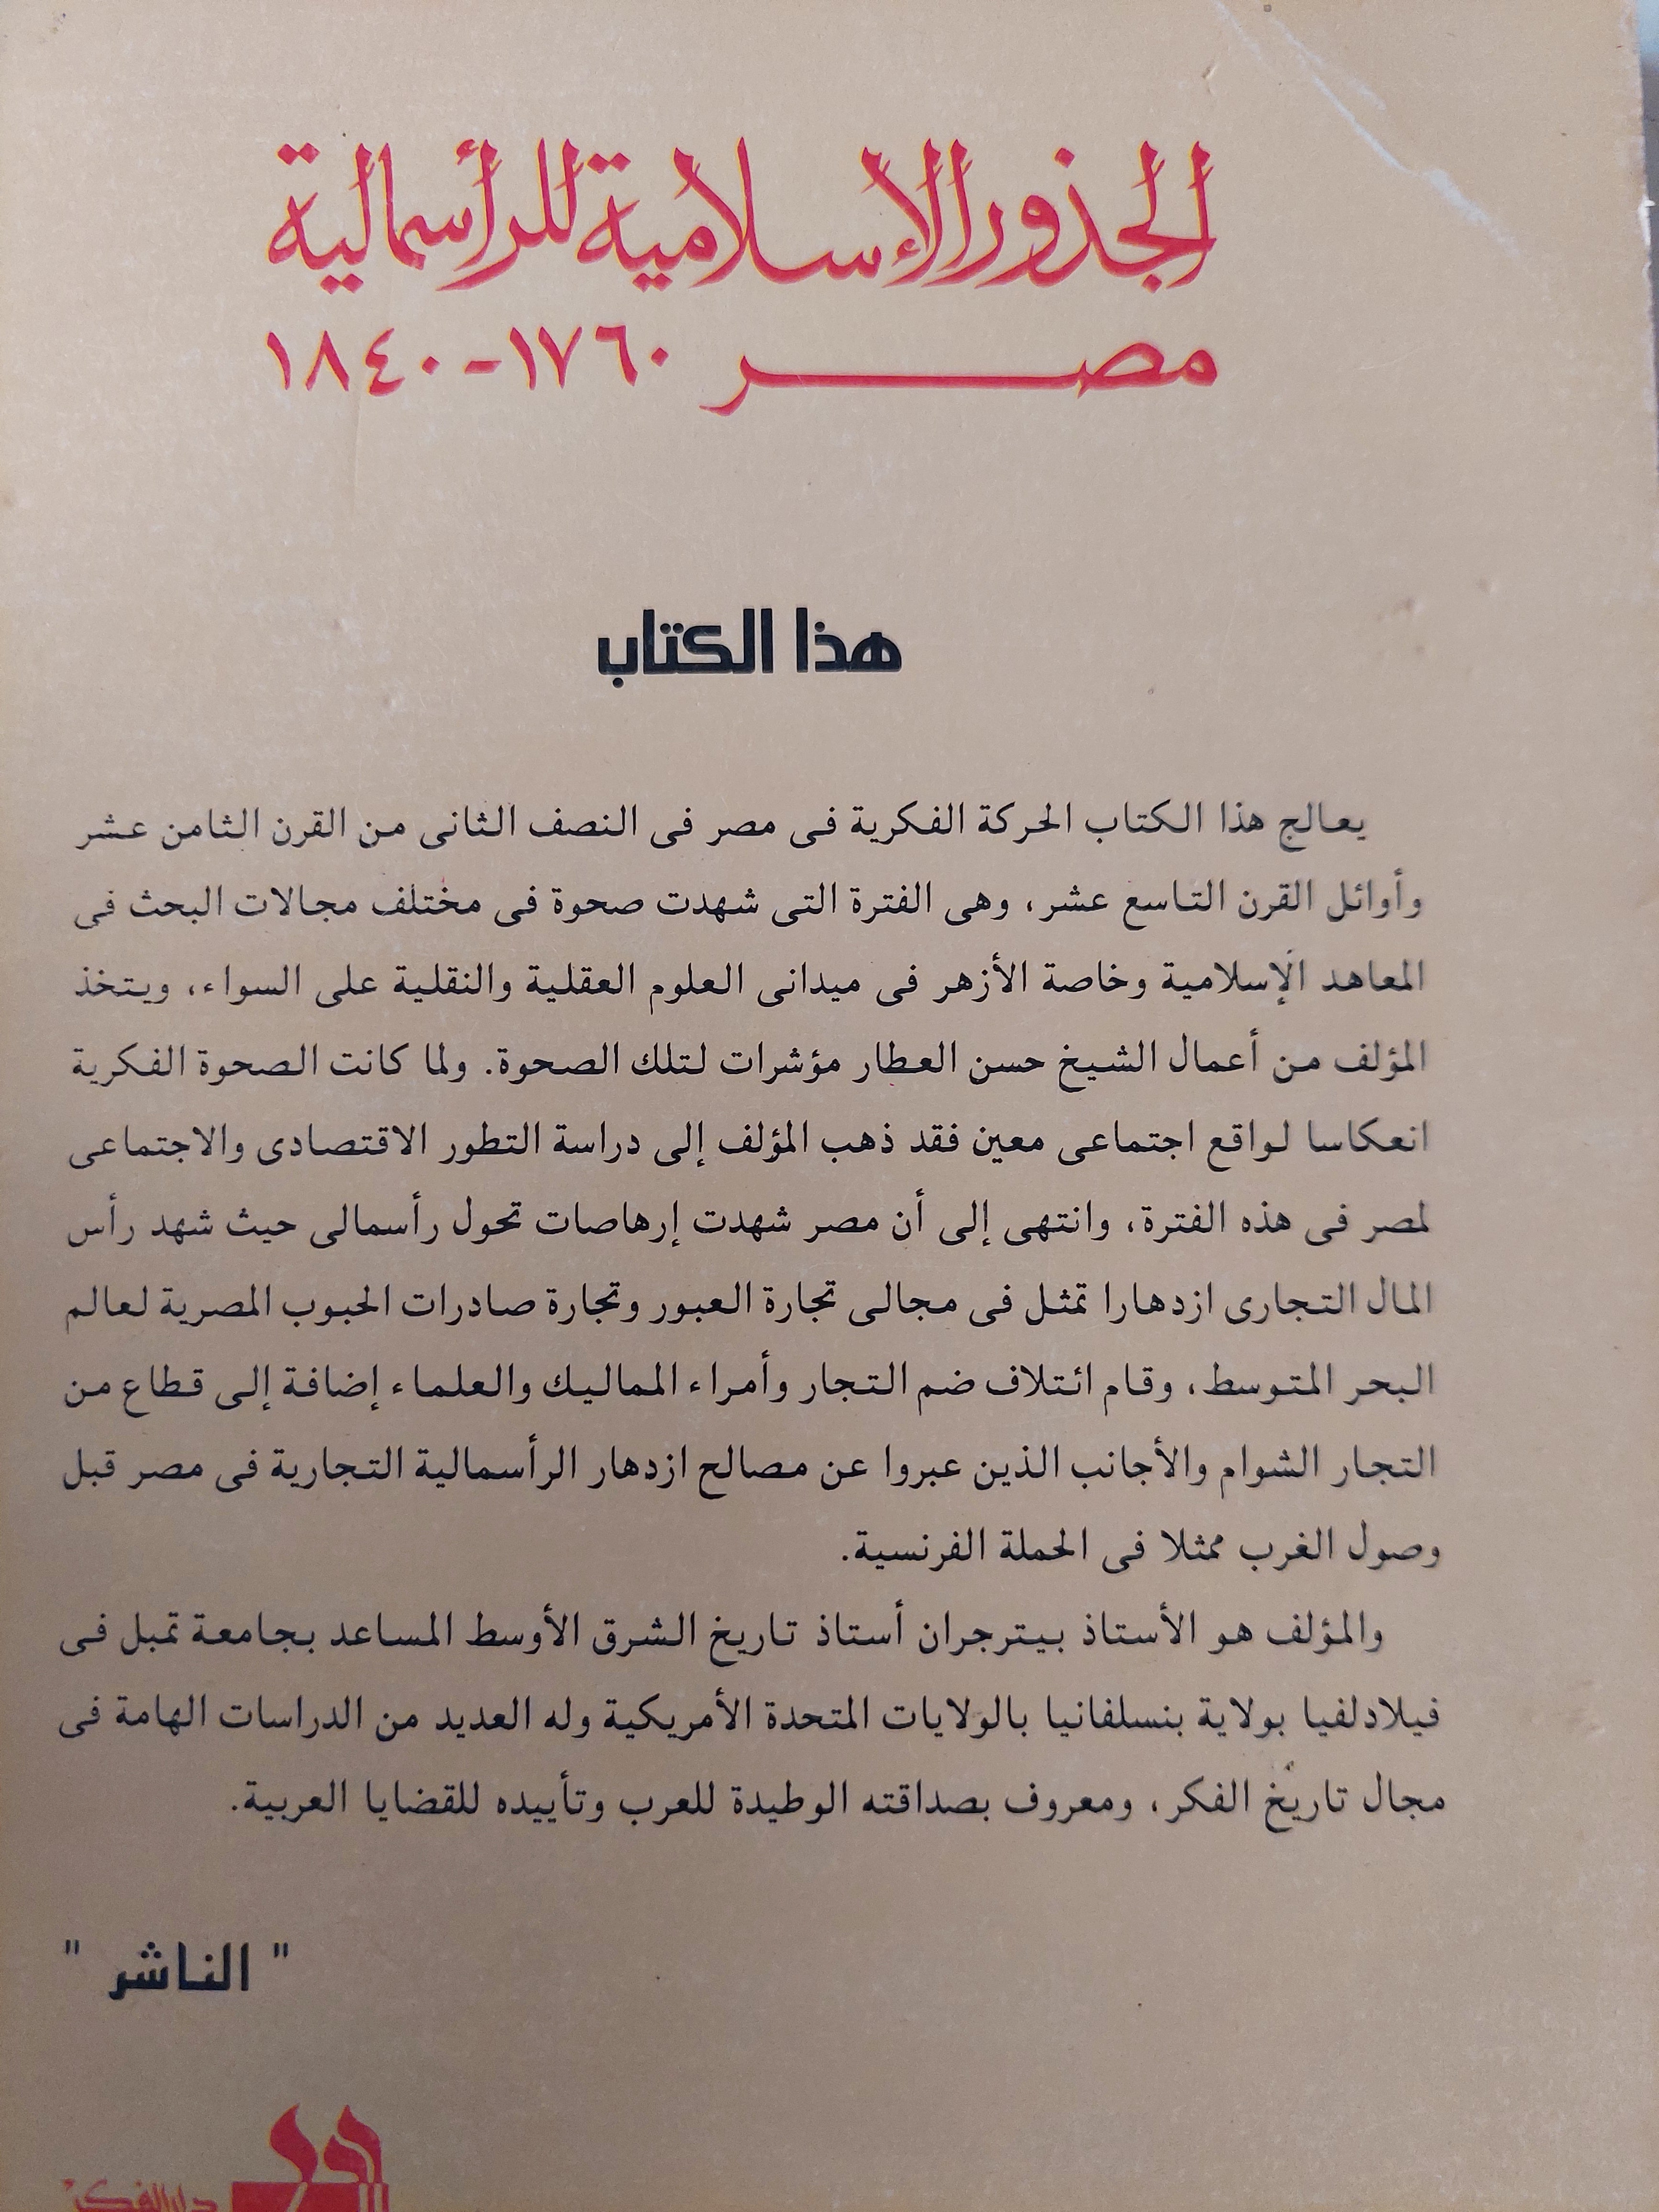 الجذور الإسلامية للرأسمالية
مصر ١٧٦٠-١٨٤٠
هذا الكتاب
يعالج هذا الكتاب الحركة الفكرية فى مصر فى النصف الثانى من القرن الثامن عشر
وأوائل القرن التاسع عشر، وهى الفترة التى شهدت صحوة فى مختلف مجالات البحث فى
المعاهد الإسلامية وخاصة الأزهر فى ميدانى العلوم العقلية والنقلية على السواء، ويتخذ
المؤلف من أعمال الشيخ حسن العطار مؤشرات لتلك الصحوة. ولما كانت الصحوة الفكرية
انعكاسا لواقع اجتماعى معين فقد ذهب المؤلف إلى دراسة التطور الاقتصادى والاجتماعى
لمصر فى هذه الفترة، وانتهى إلى أن مصر شهدت إرهاصات تحول رأسمالى حيث شهد رأس
المال التجارى ازدهارا تمثل فى مجالى تجارة العبور وتجارة صادرات الحبوب المصرية لعالم
البحر المتوسط، وقام ائتلاف ضم التجار وأمراء المماليك والعلماء إضافة إلى قطاع من
التجار الشوام والأجانب الذين عبروا عن مصالح ازدهار الرأسمالية التجارية فى مصر قبل
وصول الغرب ممثلا فى الحملة الفرنسية.
والمؤلف هو الأستاذ بيترجران أستاذ تاريخ الشرق الأوسط المساعد بجامعة تمبل فى
فيلادلفيا بولاية بنسلفانيا بالولايات المتحدة الأمريكية وله العديد من الدراسات الهامة فى
مجال تاريخ الفكر، ومعروف بصداقته الوطيدة للعرب وتأييده للقضايا العربية.
" الناشر "
دار الفكر